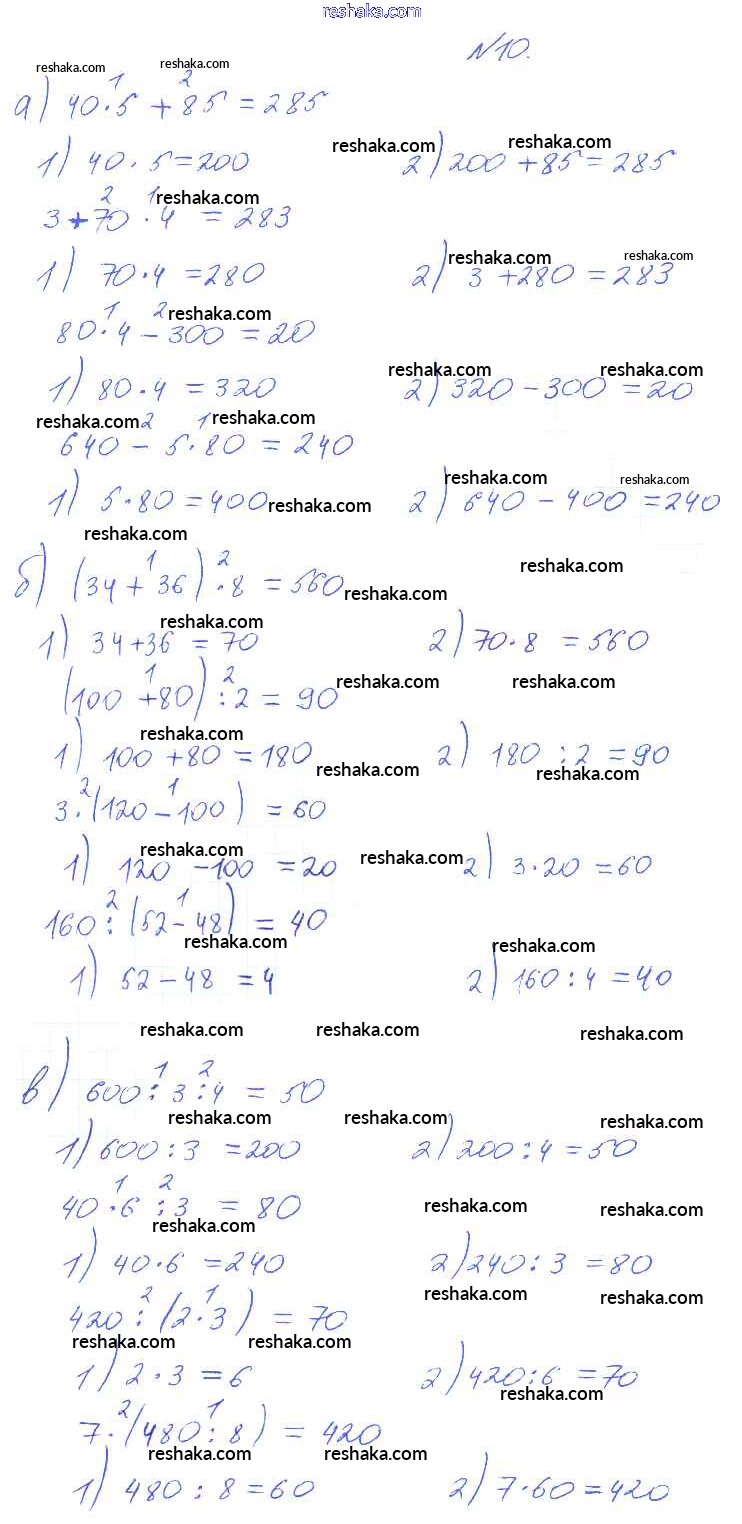 reshaka.com
№10.
reshaka.com reshaka.com
1 2
а) 40·5 + 85 = 285
reshaka.com reshaka.com
1) 40·5=200 2) 200+85=285
2 1 reshaka.com
3+70·4 = 283
reshaka.com reshaka.com
1) 70·4=280 2) 3+280=283
1 2 reshaka.com
80·4-300=20
reshaka.com reshaka.com
1) 80·4=320 2) 320-300=20
reshaka.com 2 1 reshaka.com
640 - 5·80 = 240
reshaka.com reshaka.com
1) 5·80=400 reshaka.com 2) 640-400=240
reshaka.com
1 2 reshaka.com
б) (34+36)·8=560 reshaka.com
reshaka.com
1) 34+36=70 2) 70·8=560
1 2 reshaka.com reshaka.com
(100+80):2=90
reshaka.com
1) 100+80=180 2) 180:2=90
reshaka.com reshaka.com
2 1
3·(120-100) = 60
reshaka.com reshaka.com
1) 120-100=20 2) 3·20=60
2 1
160:(52-48) = 40
reshaka.com reshaka.com
1) 52-48=4 2) 160:4=40
reshaka.com reshaka.com reshaka.com
1 2
в) 600:3:4=50
reshaka.com reshaka.com reshaka.com
1) 600:3=200 2) 200:4=50
1 2
40·6:3 = 80 reshaka.com reshaka.com
reshaka.com
1) 40·6=240 2) 240:3=80
2 1 reshaka.com reshaka.com
420:(2·3) = 70
reshaka.com reshaka.com
1) 2·3=6 2) 420:6=70
reshaka.com
2 1
7·(480:8) = 420
reshaka.com reshaka.com
1) 480:8=60 2) 7·60=420